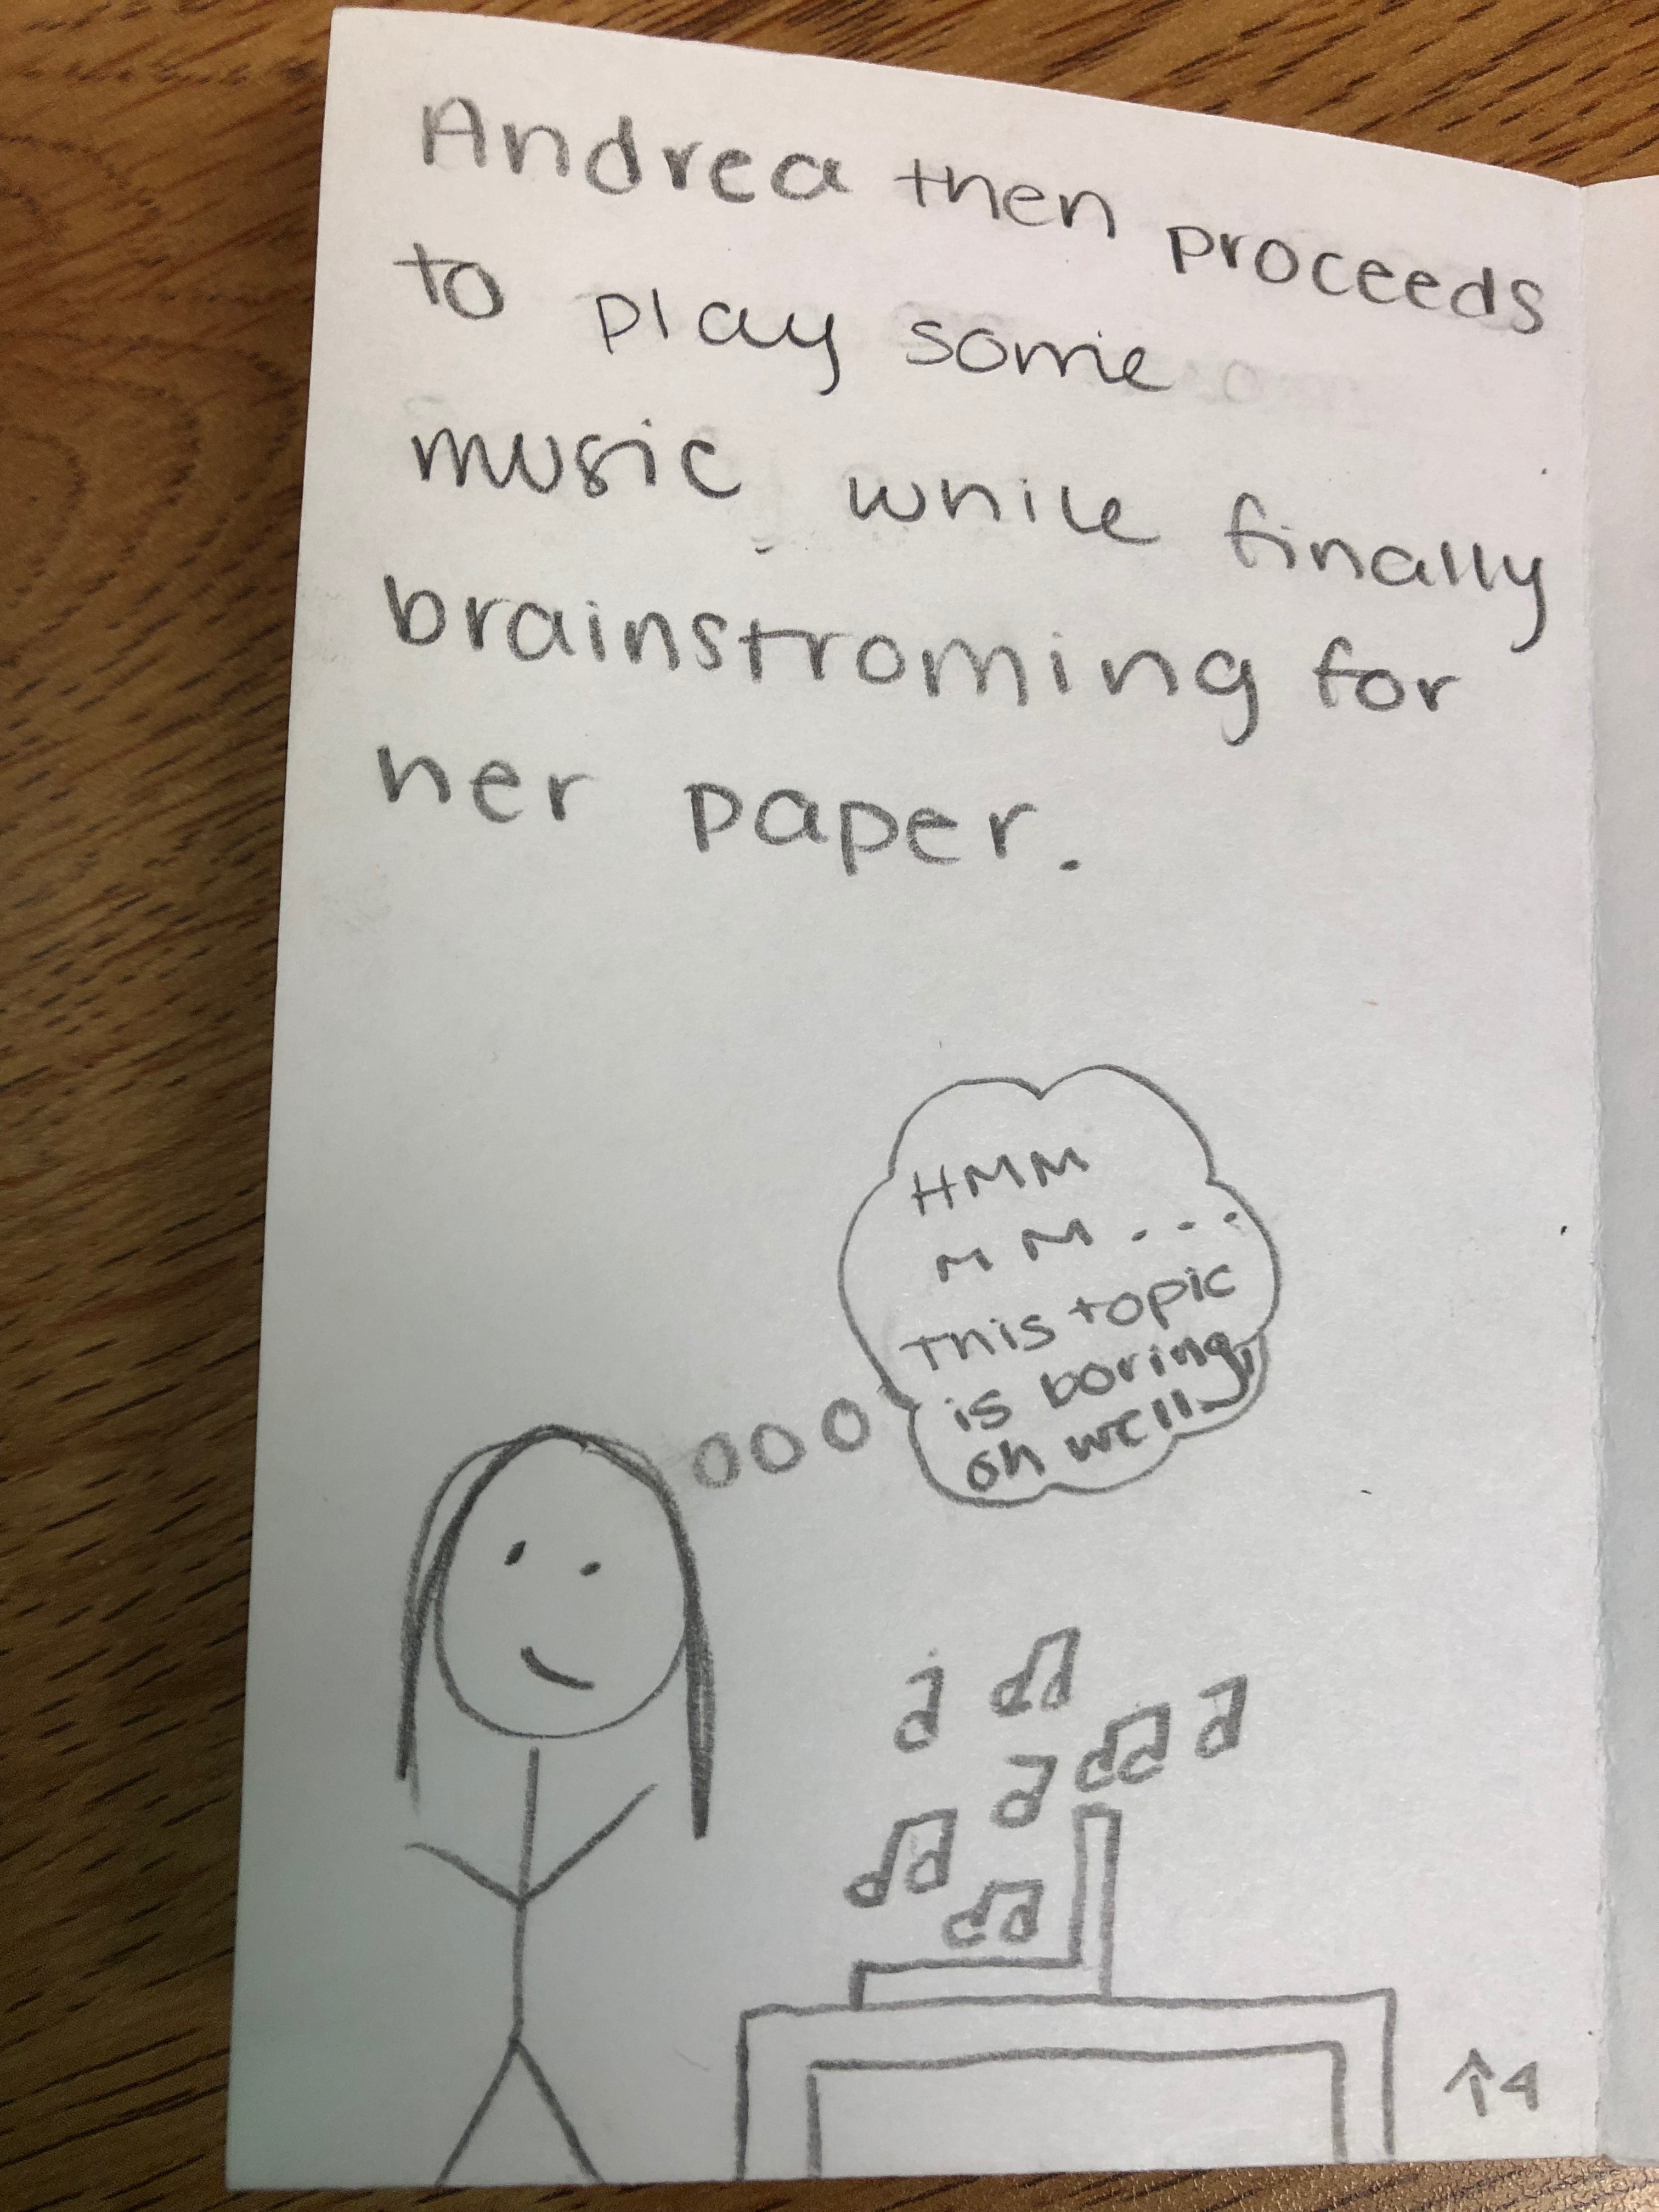 Andrea then proceeds
to play some
music while finally
brainstroming for
her paper.
HMM
MM...
This topic
is boring,
oh well
↑4